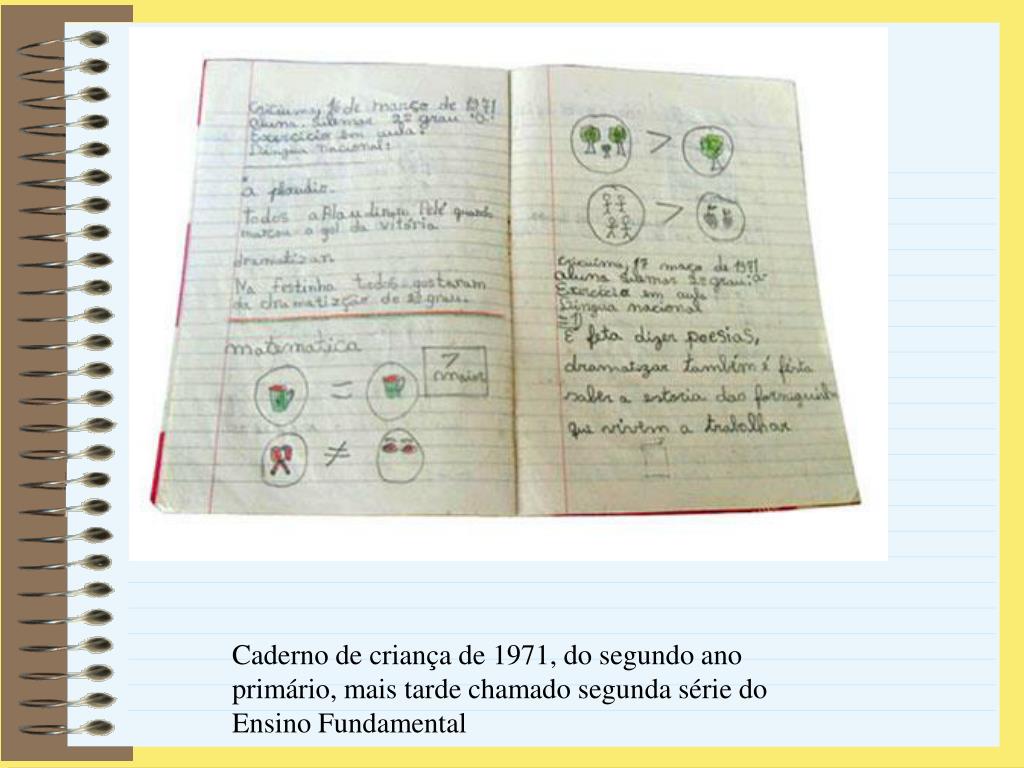 Criciuma, 16 de março de 1971
aluna. Silemar 2º grau "a"
Exercício em aula:
Língua nacional:
a plaudir.
todos aplaudiram Pelé quando
marcou o gol da vitória
dramatizar
Na festinha todos gostaram
da dramatização do 2º grau.
matematica
=
maior
≠
>
>
Criciúma, 17 março de 1971
aluna Silemar 2º grau: a
Exercício em aula
Língua nacional
=1)
É feta dizer poesias,
dramatizar também é fésta
saber a estoria das formiguinh
que vivem a trabalhar
Caderno de criança de 1971, do segundo ano
primário, mais tarde chamado segunda série do
Ensino Fundamental